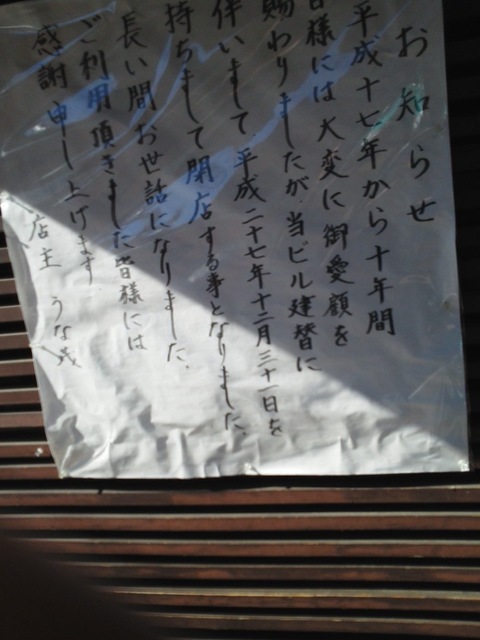 お知らせ
平成十七年から十年間
皆様には大変に御愛顧を
賜わりましたが、当ビル建替に
伴いまして、平成二十七年十二月三十一日を
持ちまして閉店する事となりました。
長い間お世話になりました。
ご利用頂きました皆様には
感謝申し上げます
店主 うな茂